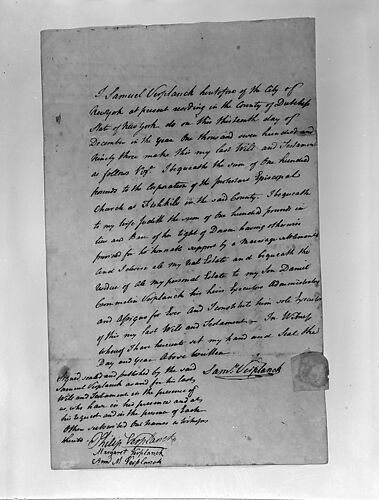 I Samuel Verplanck heretofore of the City of
New York at present residing in the County of Dutchess
State of New York do on this thirteenth day of
December in the year One thousand seven hundred and
Ninety three make this my last Will and Testament
as follows Vizt. I bequeath the sum of One hundred
pounds to the Corporation of the Protestant Episcopal
Church at Fishkills in the said County. I bequeath
to my wife Judith the sum of One hundred pounds in
lieu and Barr of her right of Dower having otherwise
provided for her honorable support by a Marriage settlement
And I devise all my real Estate and bequeath the
residue of all my personal Estate to my Son Daniel
Crommelin Verplanck his heirs Executors Administrators
and Assigns for Ever And I constitute him sole Executor
of this my last Will and Testament. In Witness
whereof I have hereunto set my hand and Seal the
Day and Year Above Written.
Saml. Verplanck
Signed sealed and published by the said
Samuel Verplanck as and for his last
Will and Testament in the presence of
us, who have in his presence and at
his request and in the presence of Each
Other subscribed Our Names as Witnesses
thereto
Philip Verplanck
Margaret Verplanck
Ann M Verplanck